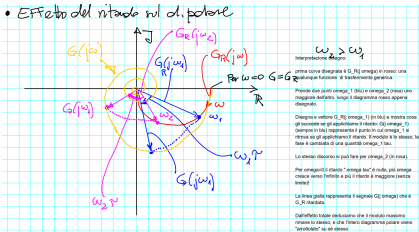 • Effetto del ritardo sul d. polare
G_R(jω₂)
G(jω)
G_R(jω₁)
G_R(jω)
ω₂ > ω₁
Per ω=0 G=G_R
R
G(jω₂)
ω₂
ω
ω₁
G(jω₁)
ω₁τ
ω₂τ
Interpretazione disegno:
prima curva disegnata è G_R(j omega) in rosso: una
qualunque funzione di trasferimento generica
Prende due punti omega_1 (blu) e omega_2 (rosa) uno
maggiore dell'altro, lungo il diagramma rosso appena
disegnato.
Disegna e vettore G_R(j omega_1) (in blu) e mostra cosa
gli succede se gli applichiamo il ritardo: G(j omega_1)
(sempre in blu) rappresenta il punto in cui omega_1 si
ritrova se gli applichiamo il ritardo. Il modulo è lo stesso; la
fase è cambiata di una quantità omega_1 tau.
Lo stesso discorso si può fare per omega_2 (in rosa).
Per omega=0 il ritardo "omega tau" è nullo, più omega
cresce verso l'infinito e più il ritardo è maggiore (senza
limite)!
La linea gialla rappresenta il segnale G(j omega) che è
G_R ritardata.
Dall'effetto totale deduciamo che il modulo massimo
rimane lo stesso, e che l'intero diagramma polare viene
"arrotolato" su sé stesso